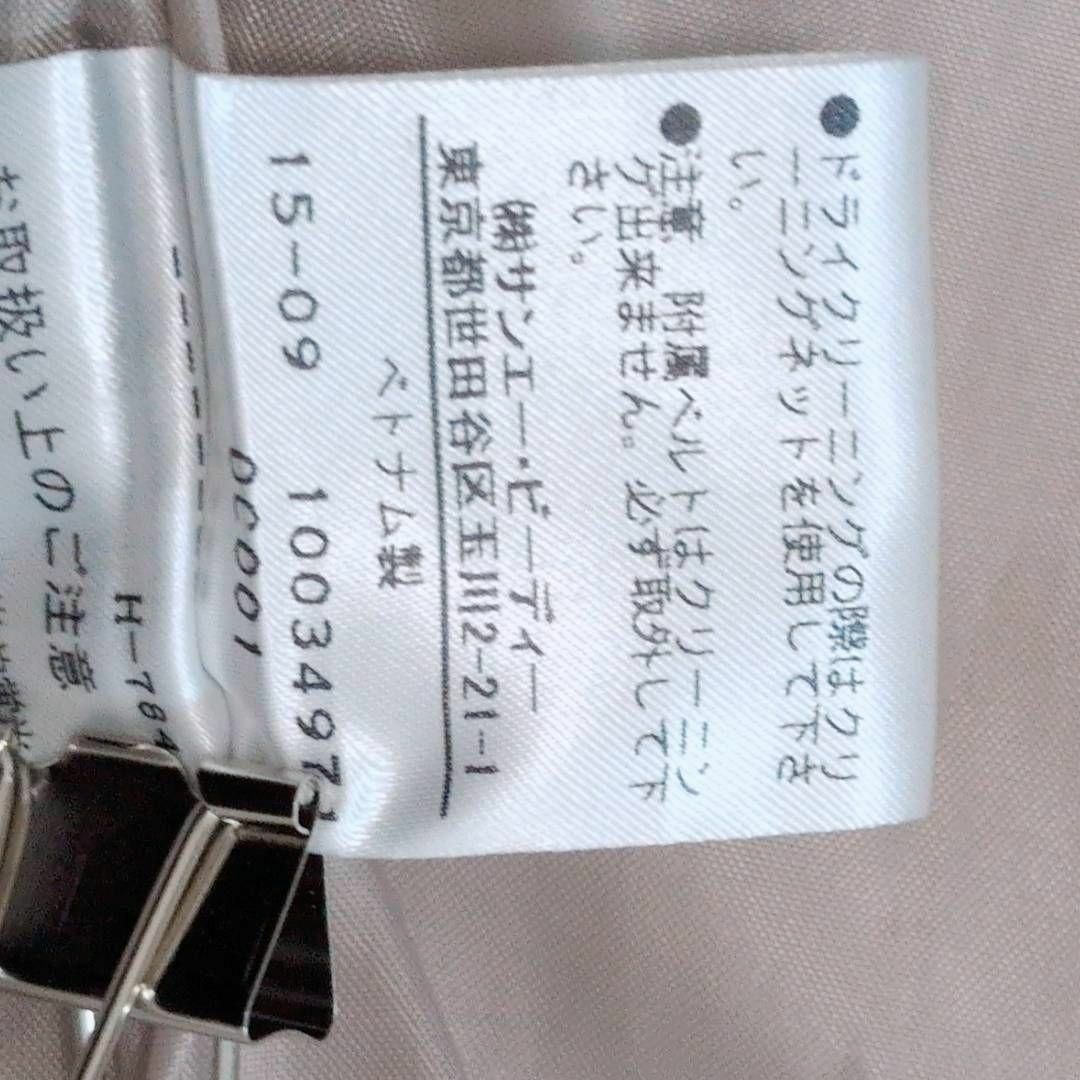 ●ドライクリーニングの際はクリ
ーニングネットを使用して下さ
い。
●注意 附属ベルトはクリーニン
グ出来ません。必ず取外して下
さい。
㈱サンエー・ビーディー
東京都世田谷区玉川2-21-1
ベトナム製
15-09 1003497
DC001
H-784
お取扱い上のご注意